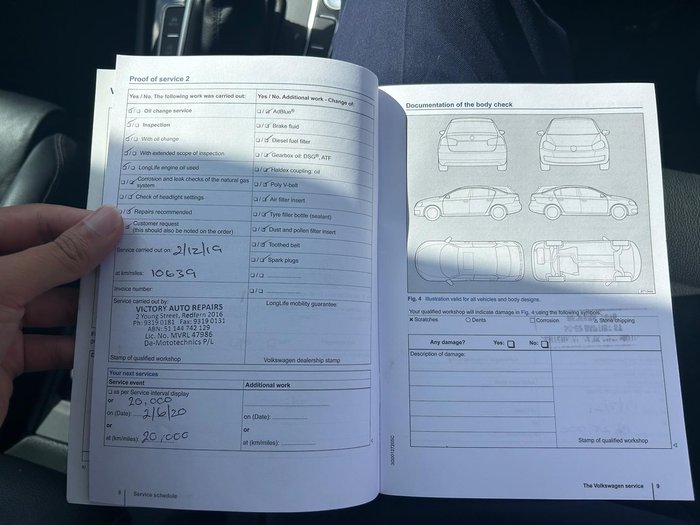 Proof of service 2
Yes / No. The following work was carried out:
Oil change service
Inspection
With oil change
With extended scope of inspection
LongLife engine oil used
Corrosion and leak checks of the natural gas
system
Check of headlight settings
Repairs recommended
Customer request
(this should also be noted on the order)
Service carried out on: 2/12/19
at km/miles: 10639
Invoice number:
Service carried out by:
VICTORY AUTO REPAIRS
2 Young Street, Redfern 2016
Ph: 9319 0181 Fax: 9319 0131
ABN: 51 144 742 129
Lic. No. MVRL 47986
De-Mototechnics P/L
Stamp of qualified workshop
Yes / No. Additional work - Change of:
AdBlue®
Brake fluid
Diesel fuel filter
Gearbox oil: DSG®, ATF
Haldex coupling: oil
Poly V-belt
Air filter insert
Tyre filler bottle (sealant)
Dust and pollen filter insert
Toothed belt
Spark plugs
LongLife mobility guarantee:
Volkswagen dealership stamp
Your next services
Service event
as per Service interval display
or 20,000
on (Date): 2/6/20
or
at (km/miles): 20,000
Additional work
on (Date):
or
at (km/miles):
8 Service schedule
Documentation of the body check
Fig. 4 Illustration valid for all vehicles and body designs.
Your qualified workshop will indicate damage in Fig. 4 using the following symbols:
× Scratches ○ Dents □ Corrosion △ Stone chipping
Any damage? Yes: No:
Description of damage:
Stamp of qualified workshop
The Volkswagen service 9